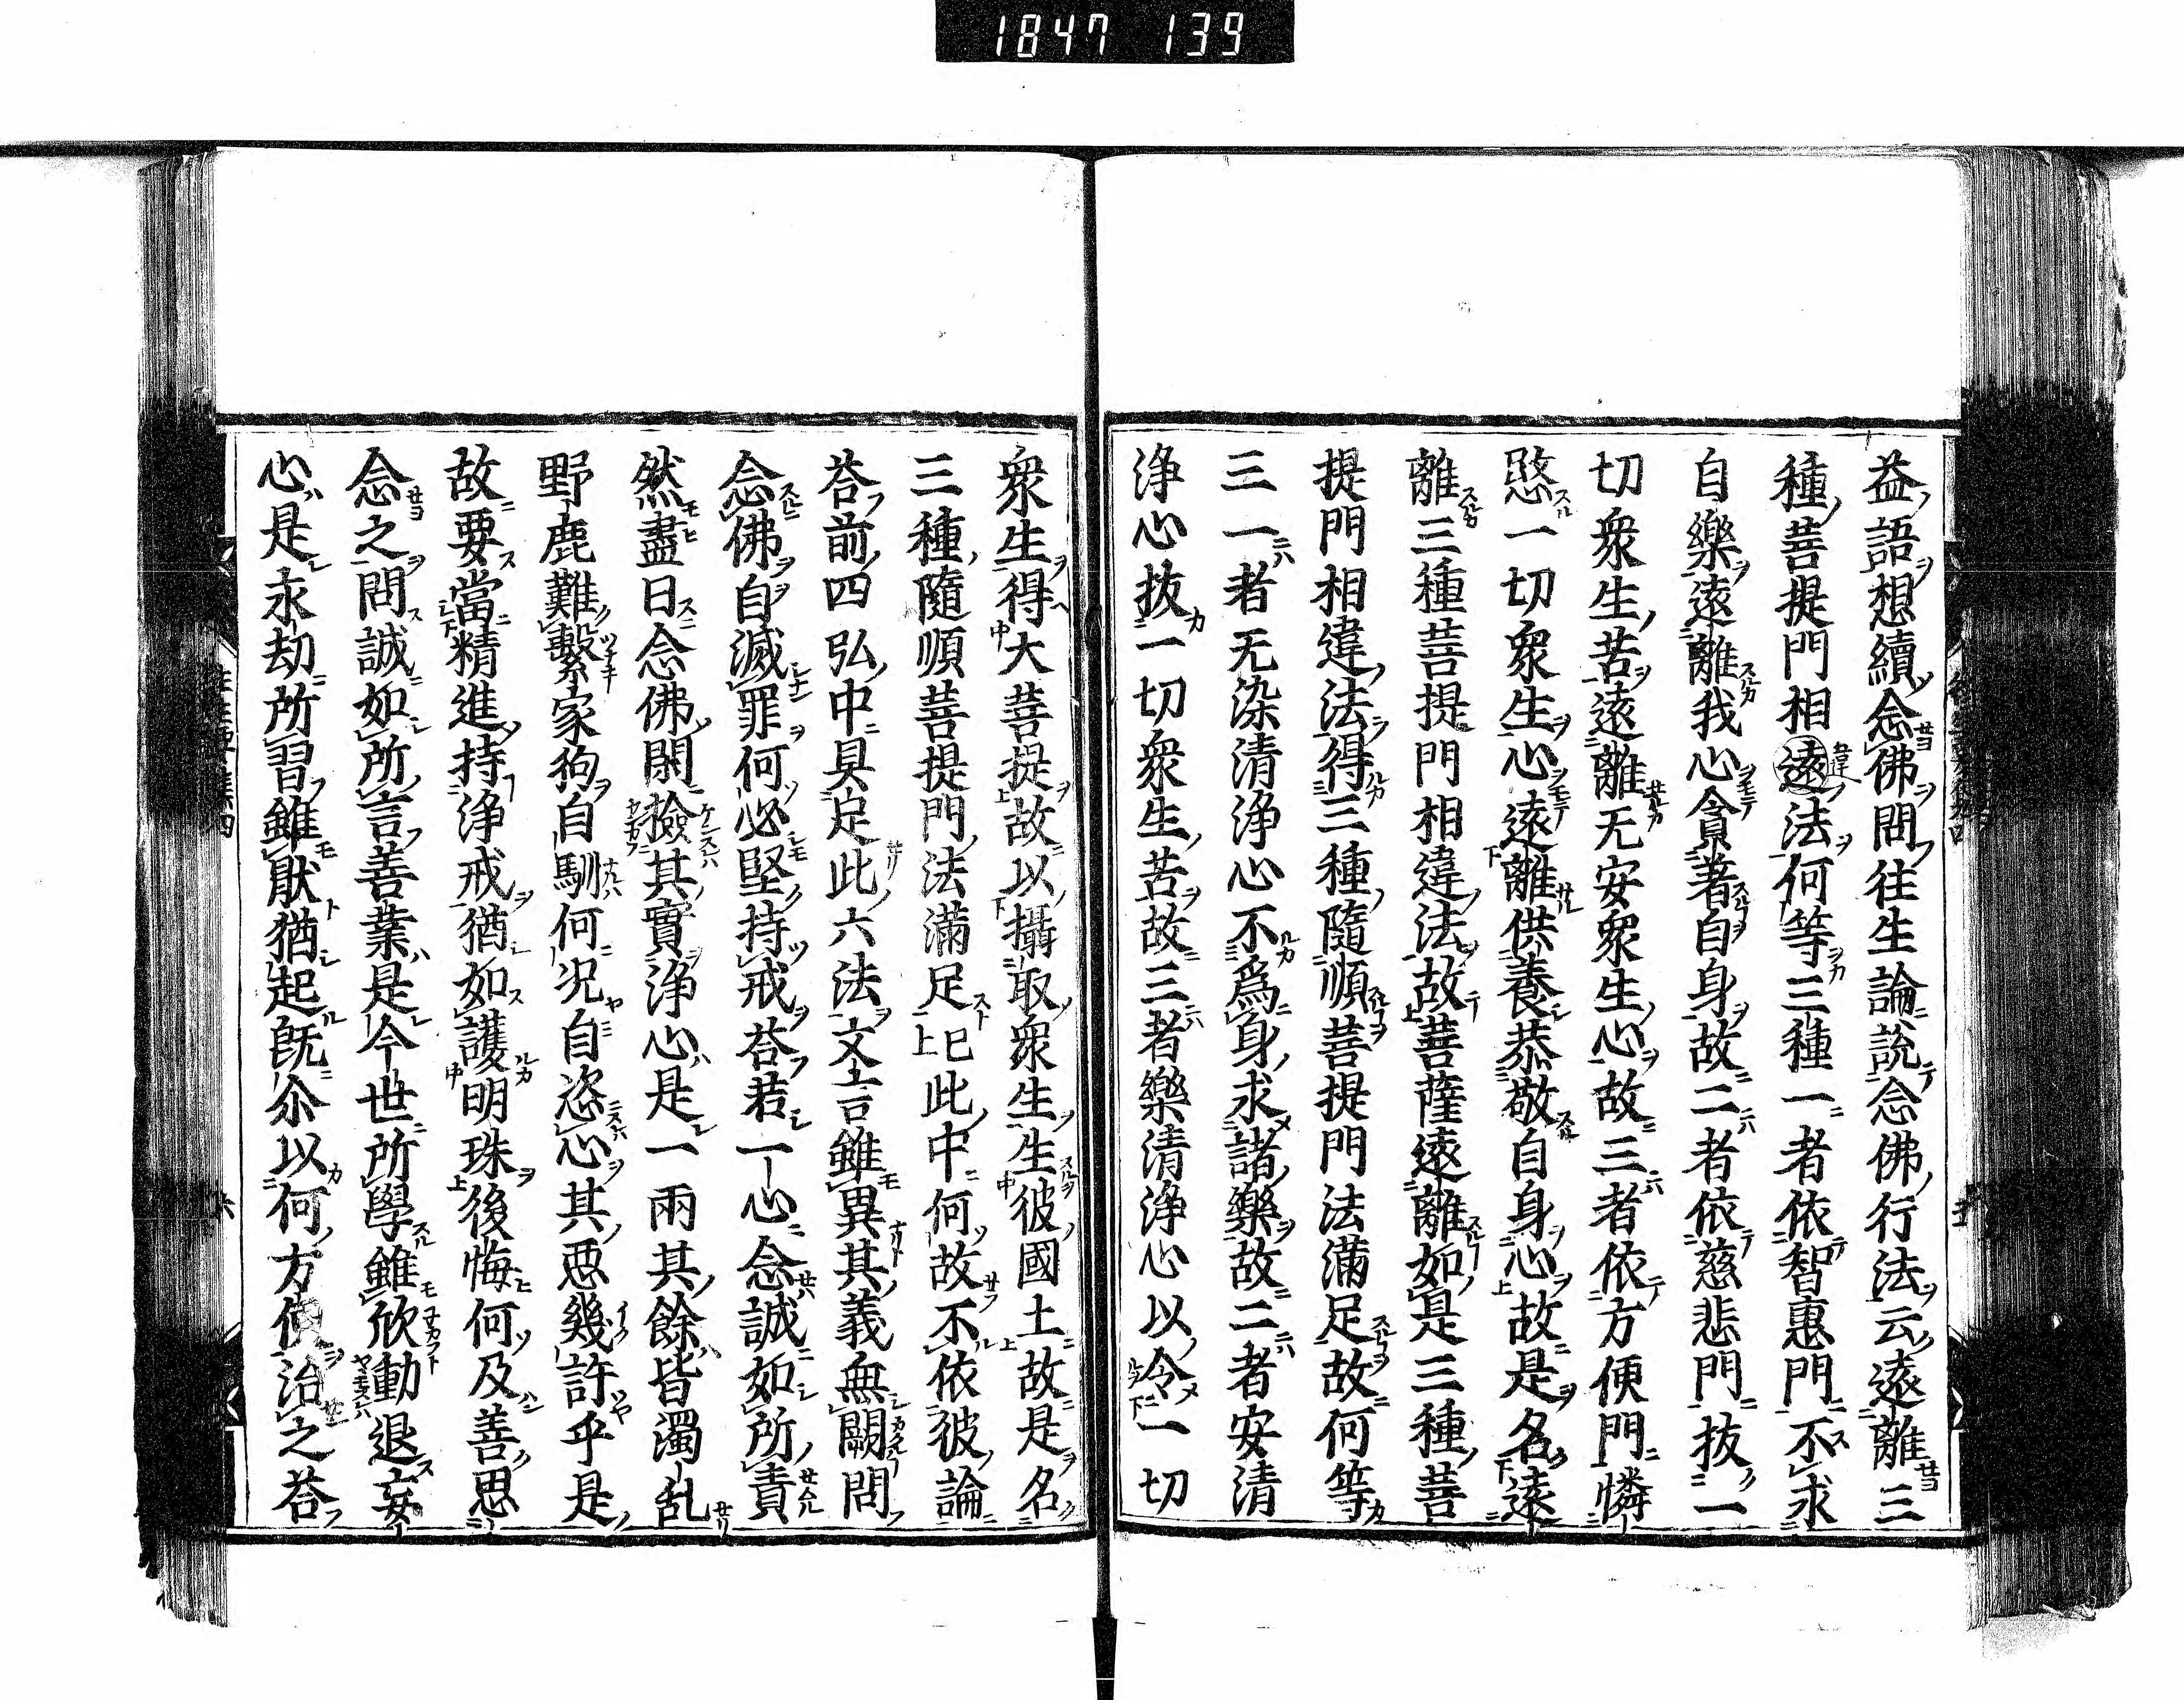 1847 139
益語想續念佛問往生論說念佛行法云遠離三
種菩提門相遠法何等三種一者依智惠門不求
自樂遠離我心貪著自身故二者依慈悲門抜一
切衆生苦遠離无安衆生心故三者依方便門憐
愍一切衆生心遠離供養恭敬自身心故是名遠
離三種菩提門相違法故菩薩遠離如是三種菩
提門相違法得三種隨順菩提門法滿足故何等
三一者无染清淨心不為身求諸樂故二者安清
淨心抜一切衆生苦故三者樂清淨心以令一切
衆生得大菩提故以攝取衆生生彼國土故是名
三種隨順菩提門法滿足已上此中何故不依彼論
荅前四弘中具足此六法文言雖異其義無闕問
念佛自滅罪何必堅持戒荅若一心念誠如所責
然盡日念佛閑撿其實淨心是一兩其餘皆濁乱
野鹿難繫家狗自馴何况自恣心其惡幾許乎是
故要當精進持淨戒猶如護明珠後悔何及善思
念之問誠如所言善業是今世所學雖欣動退妄
心是永劫所習雖猒猶起旣尒以何方便治之荅